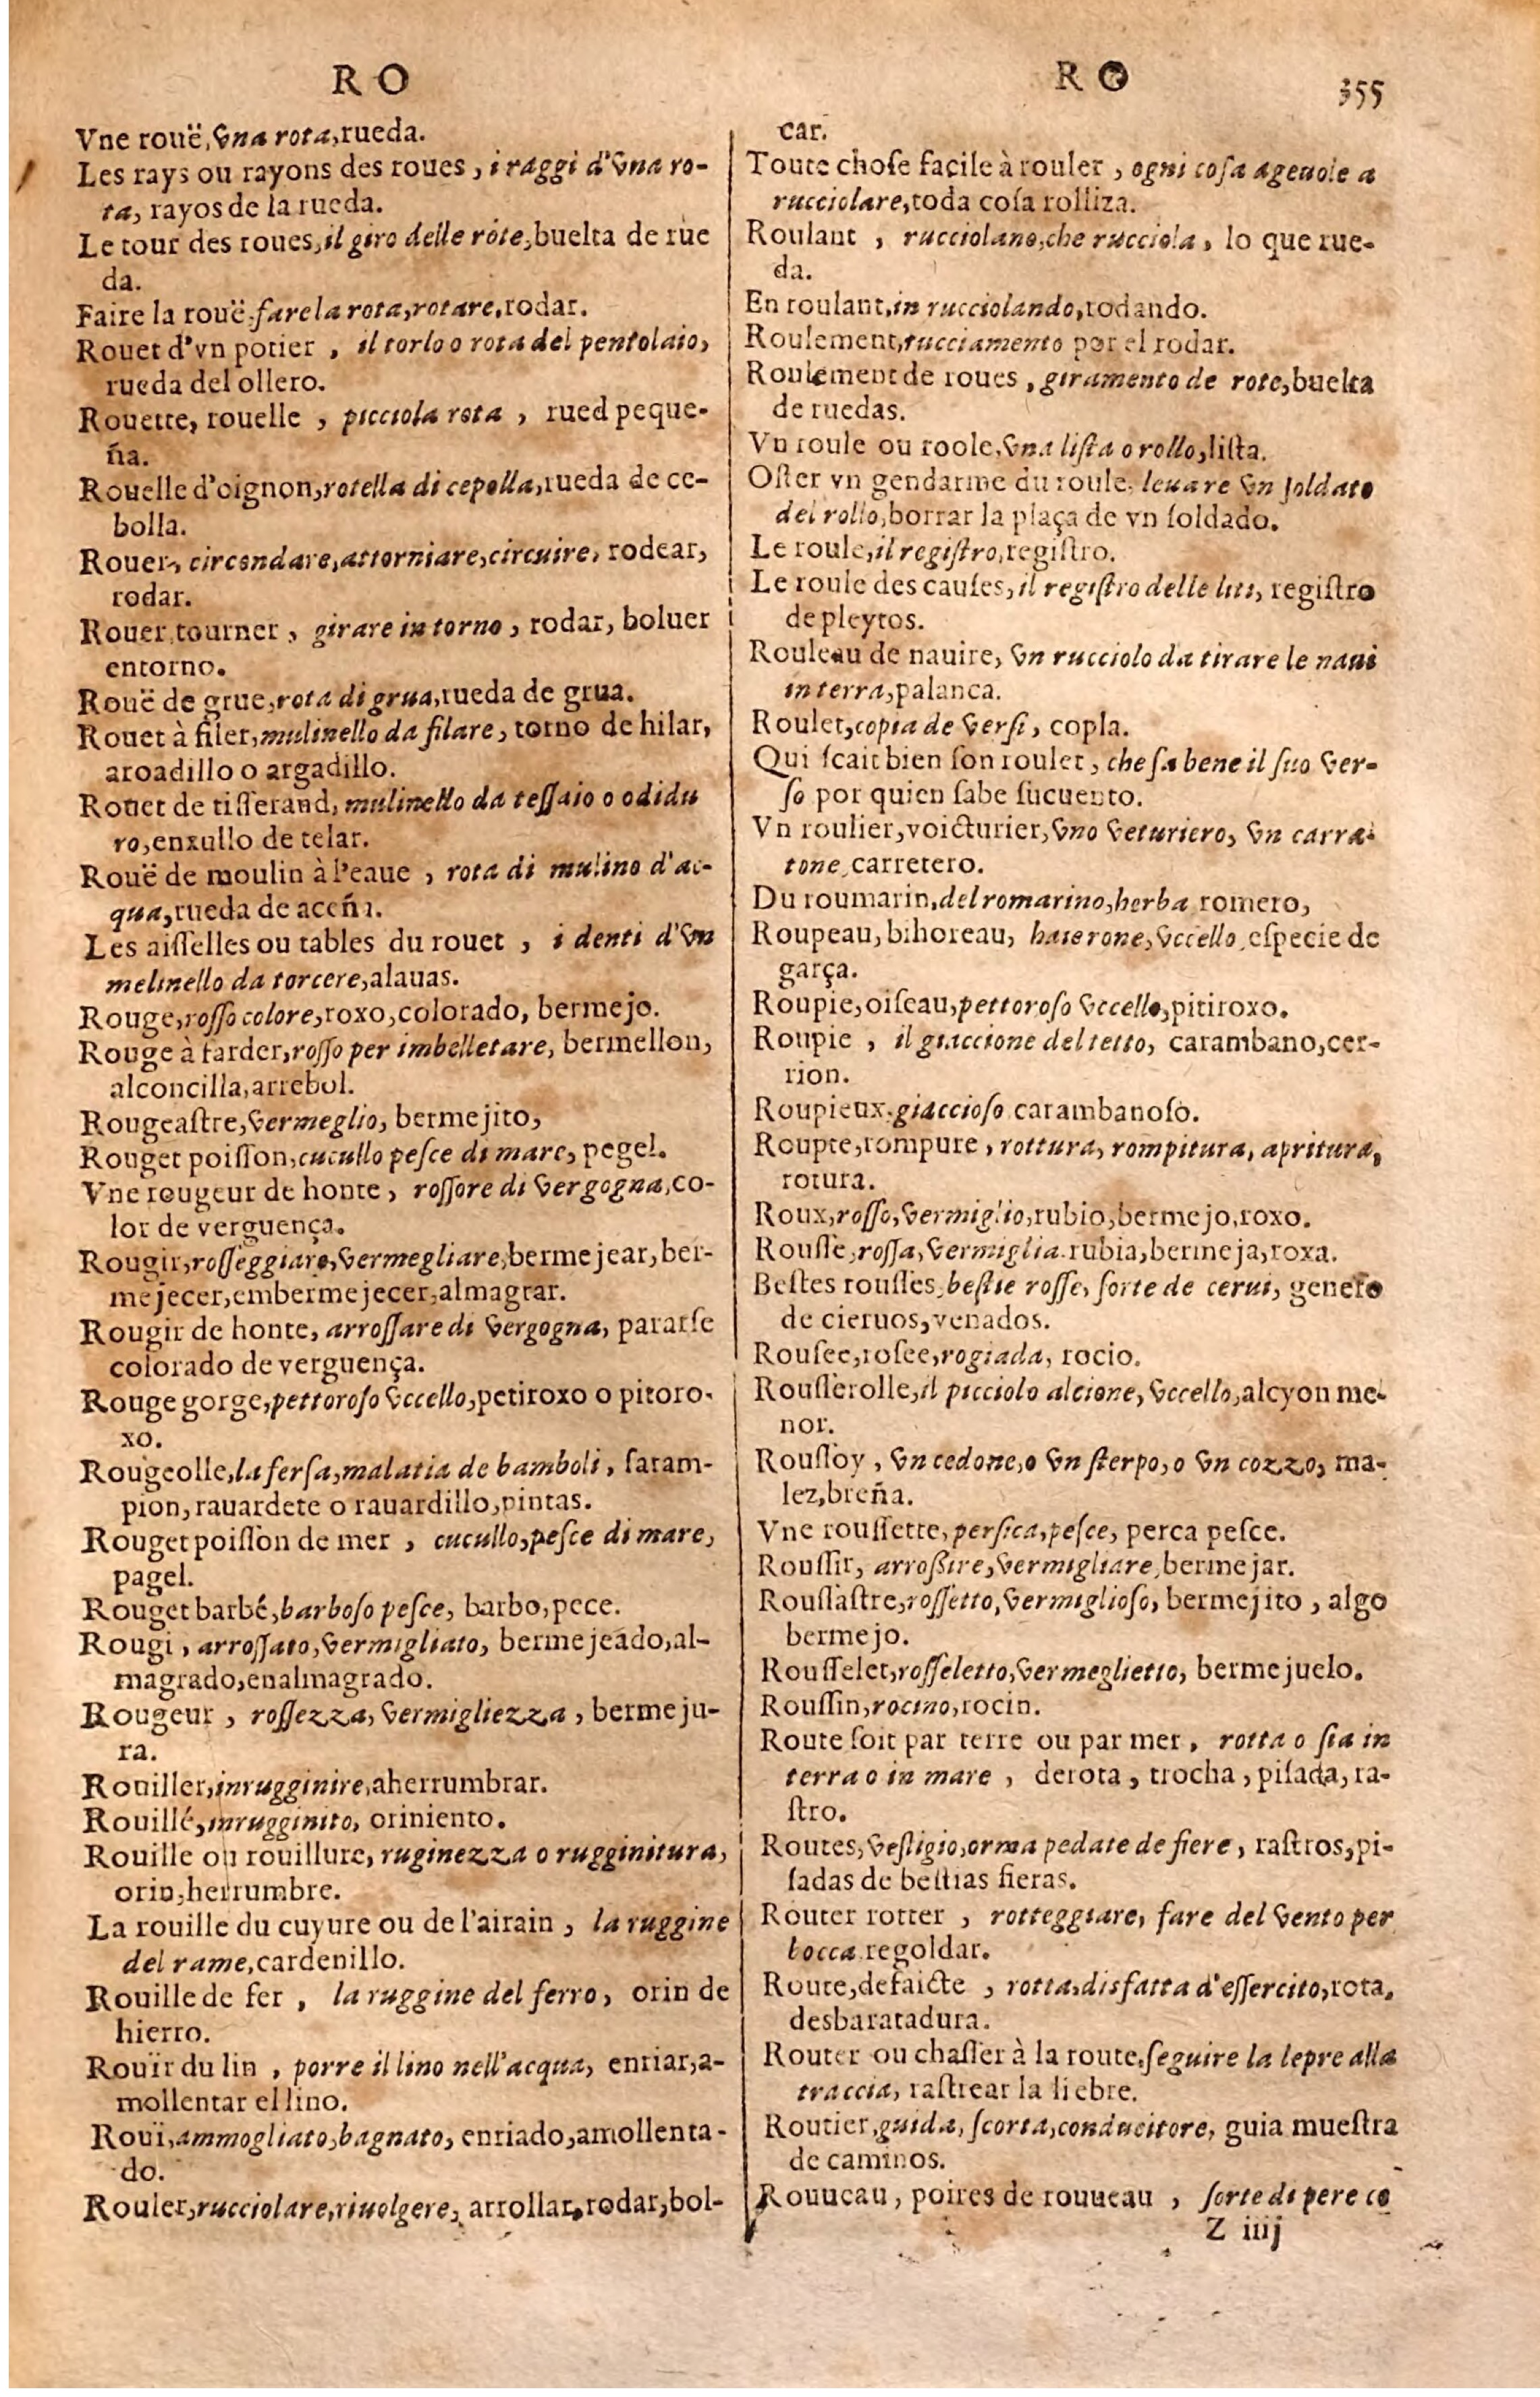 R O
Vne rouë, vna rota, rueda.
Les rays ou rayons des roues, i raggi d'vna ro-
ta, rayos de la rueda.
Le tour des roues, il giro delle rote, buelta de rue
da.
Faire la rouë, fare la rota, rotare, rodar.
Rouet d'vn potier, il torlo o rota del pentolaio,
rueda del ollero.
Rouette, rouelle, picciola rota, rued peque-
ña.
Rouelle d'oignon, rotella di cepolla, rueda de ce-
bolla.
Rouer, circondare, attorniare, circuire, rodear,
rodar.
Rouer, tourner, girare in torno, rodar, boluer
entorno.
Rouë de grue, rota di grua, rueda de grua.
Rouet à filer, mulinello da filare, torno de hilar,
aroadillo o argadillo.
Rouet de tiſſerand, mulinello da teſſaio o odidu
ro, enxullo de telar.
Rouë de moulin à l'eaue, rota di mulino d'ac-
qua, rueda de aceña.
Les aiſſelles ou tables du rouet, i denti d'vn
melinello da torcere, alauas.
Rouge, roſſo colore, roxo, colorado, bermejo.
Rouge à farder, roſſo per imbelletare, bermellon,
alconcilla, arrebol.
Rougeaſtre, vermeglio, bermejito,
Rouget poiſſon, cucullo peſce di mare, pegel.
Vne rougeur de honte, roſſore di vergogna, co-
lor de verguença.
Rougir, roſſeggiare, vermegliare, bermejear, ber-
mejecer, embermejecer, almagrar.
Rougir de honte, arroſſare di vergogna, pararſe
colorado de verguença.
Rouge gorge, pettoroſo vccello, petiroxo o pitoro-
xo.
Rougeolle, la ferſa, malatia de bamboli, ſaram-
pion, rauardete o rauardillo, pintas.
Rouget poiſſon de mer, cucullo, peſce di mare,
pagel.
Rouget barbé, barboſo peſce, barbo, pece.
Rougi, arroſſato, vermigliato, bermejeado, al-
magrado, enalmagrado.
Rougeur, roſſezza, vermigliezza, bermeju-
ra.
Rouiller, inrugginire, aherrumbrar.
Rouillé, inrugginito, oriniento.
Rouille ou rouillure, ruginezza o rugginitura,
orin, herrumbre.
La rouille du cuyure ou de l'airain, la ruggine
del rame, cardenillo.
Rouille de fer, la ruggine del ferro, orin de
hierro.
Rouïr du lin, porre il lino nell'acqua, enriar, a-
mollentar el lino.
Rouï, ammogliato, bagnato, enriado, amollenta-
do.
Rouler, rucciolare, riuolgere, arrollar, rodar, bol-
R O 355
car.
Toute choſe facile à rouler, ogni coſa ageuole a
rucciolare, toda coſa rolliza.
Roulant, rucciolano, che rucciola, lo que rue-
da.
En roulant, in rucciolando, rodando.
Roulement, rucciamento por el rodar.
Roulement de roues, giramento de rote, buelta
de ruedas.
Vn roule ou roole, vna liſta o rollo, liſta.
Oſter vn gendarme du roule, leuare vn ſoldato
del rollo, borrar la plaça de vn ſoldado.
Le roule, il regiſtro, regiſtro.
Le roule des cauſes, il regiſtro delle liti, regiſtro
de pleytos.
Rouleau de nauire, vn rucciolo da tirare le naui
in terra, palanca.
Roulet, copia de verſi, copla.
Qui ſcait bien ſon roulet, che ſa bene il ſuo ver-
ſo por quien ſabe ſucuento.
Vn roulier, voicturier, vno veturiero, vn carra-
tone, carretero.
Du roumarin, del romarino, herba romero,
Roupeau, bihoreau, haierone, vccello, eſpecie de
garça.
Roupie, oiſeau, pettoroſo vccello, pitiroxo.
Roupie, il giaccione del tetto, carambano, cer-
rion.
Roupieux, giaccioſo carambanoſo.
Roupte, rompure, rottura, rompitura, apritura,
rotura.
Roux, roſſo, vermiglio, rubio, bermejo, roxo.
Rouſſe, roſſa, vermiglia, rubia, bermeja, roxa.
Beſtes rouſſes, beſtie roſſe, ſorte de cerui, genero
de cieruos, venados.
Rouſee, roſee, rogiada, rocio.
Rouſſerolle, il picciolo alcione, vccello, alcyon me-
nor.
Rouſſoy, vn cedone, o vn ſterpo, o vn cozzo, ma-
lez, breña.
Vne rouſſette, perſica, peſce, perca peſce.
Rouſſir, arroßire, vermigliare, bermejar.
Rouſſaſtre, roſſetto, vermiglioſo, bermejito, algo
bermejo.
Rouſſelet, roſſeletto, vermeglietto, bermejuelo.
Rouſſin, rocino, rocin.
Route ſoit par terre ou par mer, rotta o ſia in
terra o in mare, derota, trocha, piſada, ra-
ſtro.
Routes, veſtigio, orma pedate de fiere, raſtros, pi-
ſadas de beſtias fieras.
Router rotter, rotteggiare, fare del vento per
bocca regoldar.
Route, defaicte, rotta, disfatta d'eſſercito, rota,
desbaratadura.
Router ou chaſſer à la route, ſeguire la lepre alla
traccia, raſtrear la liebre.
Routier, guida, ſcorta, conducitore, guia mueſtra
de caminos.
Rouueau, poires de rouueau, ſorte di pere co
Z iiij